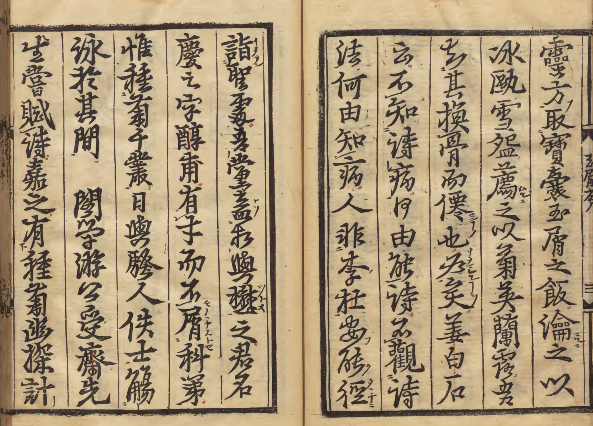 靈方取寶囊玉屑之飯瀹之以
冰甌雪盌薦之以菊英蘭露吾
知其換骨而僊也必矣姜白石
云不知詩病何由能詩不觀詩
法何由知病人非李杜安能徑
詣聖處吾黨盍相與懋之君名
慶之字醇甫有才而不屑科第
惟種菊千叢日與騷人佚士觴
詠於其間　閤學游公受齋先
生嘗賦詩嘉之有種菊幽探計